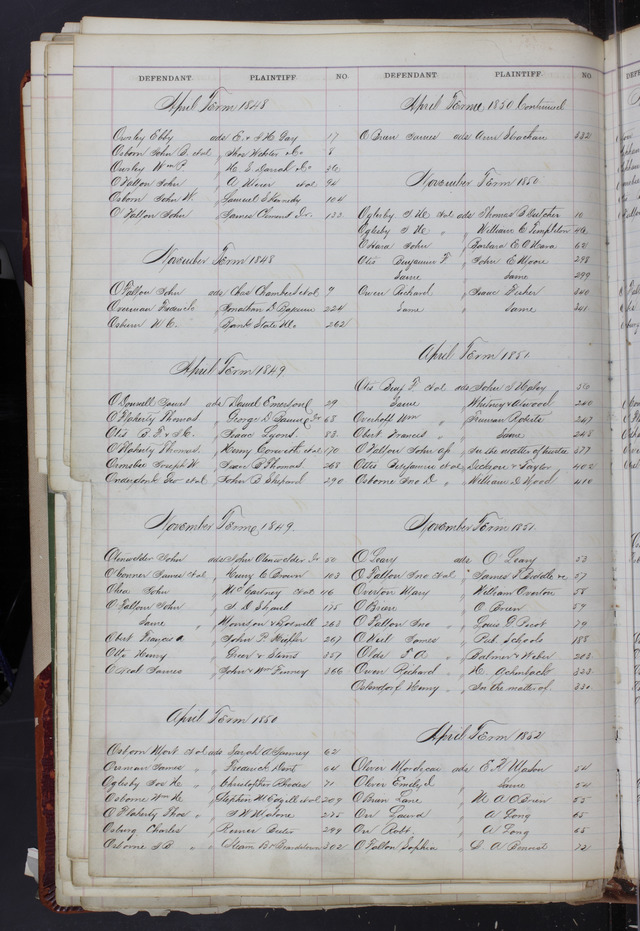 DEFENDANT PLAINTIFF NO.
April Term 1848
Owsley Ebby ads E. & S H Gay 17
Osborn John B. et al " Thos Webster & Co 8
Owsley Wm P. " H. S. Darrah & Co 36
O'Fallon John " A Wiser et al 94
Osborn John W. " Samuel S Kennedy 104
O'Fallon John " James Clemens Jr. 133
November Term 1848
O'Fallon John ads Chas Chambers et al 9
Overman " Jonathan D 224
Osburn W C. " Bank State Mo. 262
April Term 1849
O'Donnell James ads Daniel Emerson 29
O'Flaherty Thomas " George D 68
Otis B. F. & " Isaac Lyons. 83
O'Flaherty Thomas. " Henry et al 170
Ormsbee Joseph W. " Thomas 268
Geo et al " John B Shepard 290
November Term 1849
Olenwelder John ads John Olenwelder Jr 50
O'Conner James et al " Henry C Brown 103
Ohea John " McCartney et al 46
O'Fallon John " 175
Same " Morrison & 263
Obert Francis A " John P 267
Otto Henry " Greer & 357
O'Neal James " John & Wm Finney 366
April Term 1850
Osborn Mort et al ads Sarah A 62
James " Frederick Dent 64
Oglesby Jos H " Christopher Rhodes 71
Osborne Wm H " Stephen W et al 209
O'Flaherty Thos " J W Malone 275
Osburg Charles " 299
Osborne J B " Steam Bt Beardstown 302
DEFENDANT PLAINTIFF NO.
April Term 1850 Continued
O'Brien James ads Ann Strachan 332
November Term 1850
Oglesby J H et al ads Thomas B 10
Oglesby J H " William C Templeton 46
O'Hara John " Barbara E O'Hara 64
Otis Benjamin F. " John C Moore 298
Same " Same 299
Owen Richard " Isaac Fisher 340
Same " Same 341
April Term 1851
Otis Benj F. et al ads John S 36
Same " Whitney & 240
Overhoff Wm " Truman Roberts 247
Obert Francis " Same 248
O'Fallon John " In the matter of 377
Otis Benjamin et al " Dickson & Taylor 402
Osborne Jno D " William D Wood 410
November Term 1851.
O'Leary ads O'Leary 53
O'Fallon Jno et al " James S Biddle &c 57
Overton Mary " William Overton 58
O'Brien " O'Brien 59
O'Fallon Jno " Louis G Picot 79
O'Neil James " Pub. Schools 188
Olds F A " Palmer & Weber 203
Owen Richard " H. Achenback 323
Ostendorf Henry " In the matter of. 330
April Term 1852
Oliver Mordecai ads E. H 54
Oliver Emily J. " Same 54
O'Brien Jane " M. A O'Brien 55
Orr Laura " A Long 65
Orr Robt. " A Long 65
O'Fallon Sophia " C. A 72